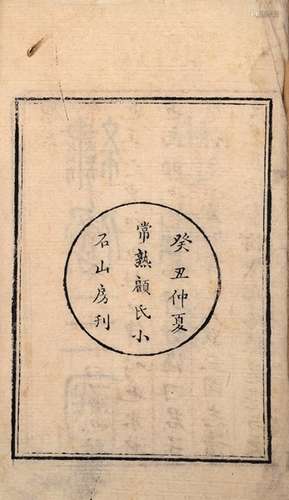 癸丑仲夏
常熟顧氏小
石山房刊